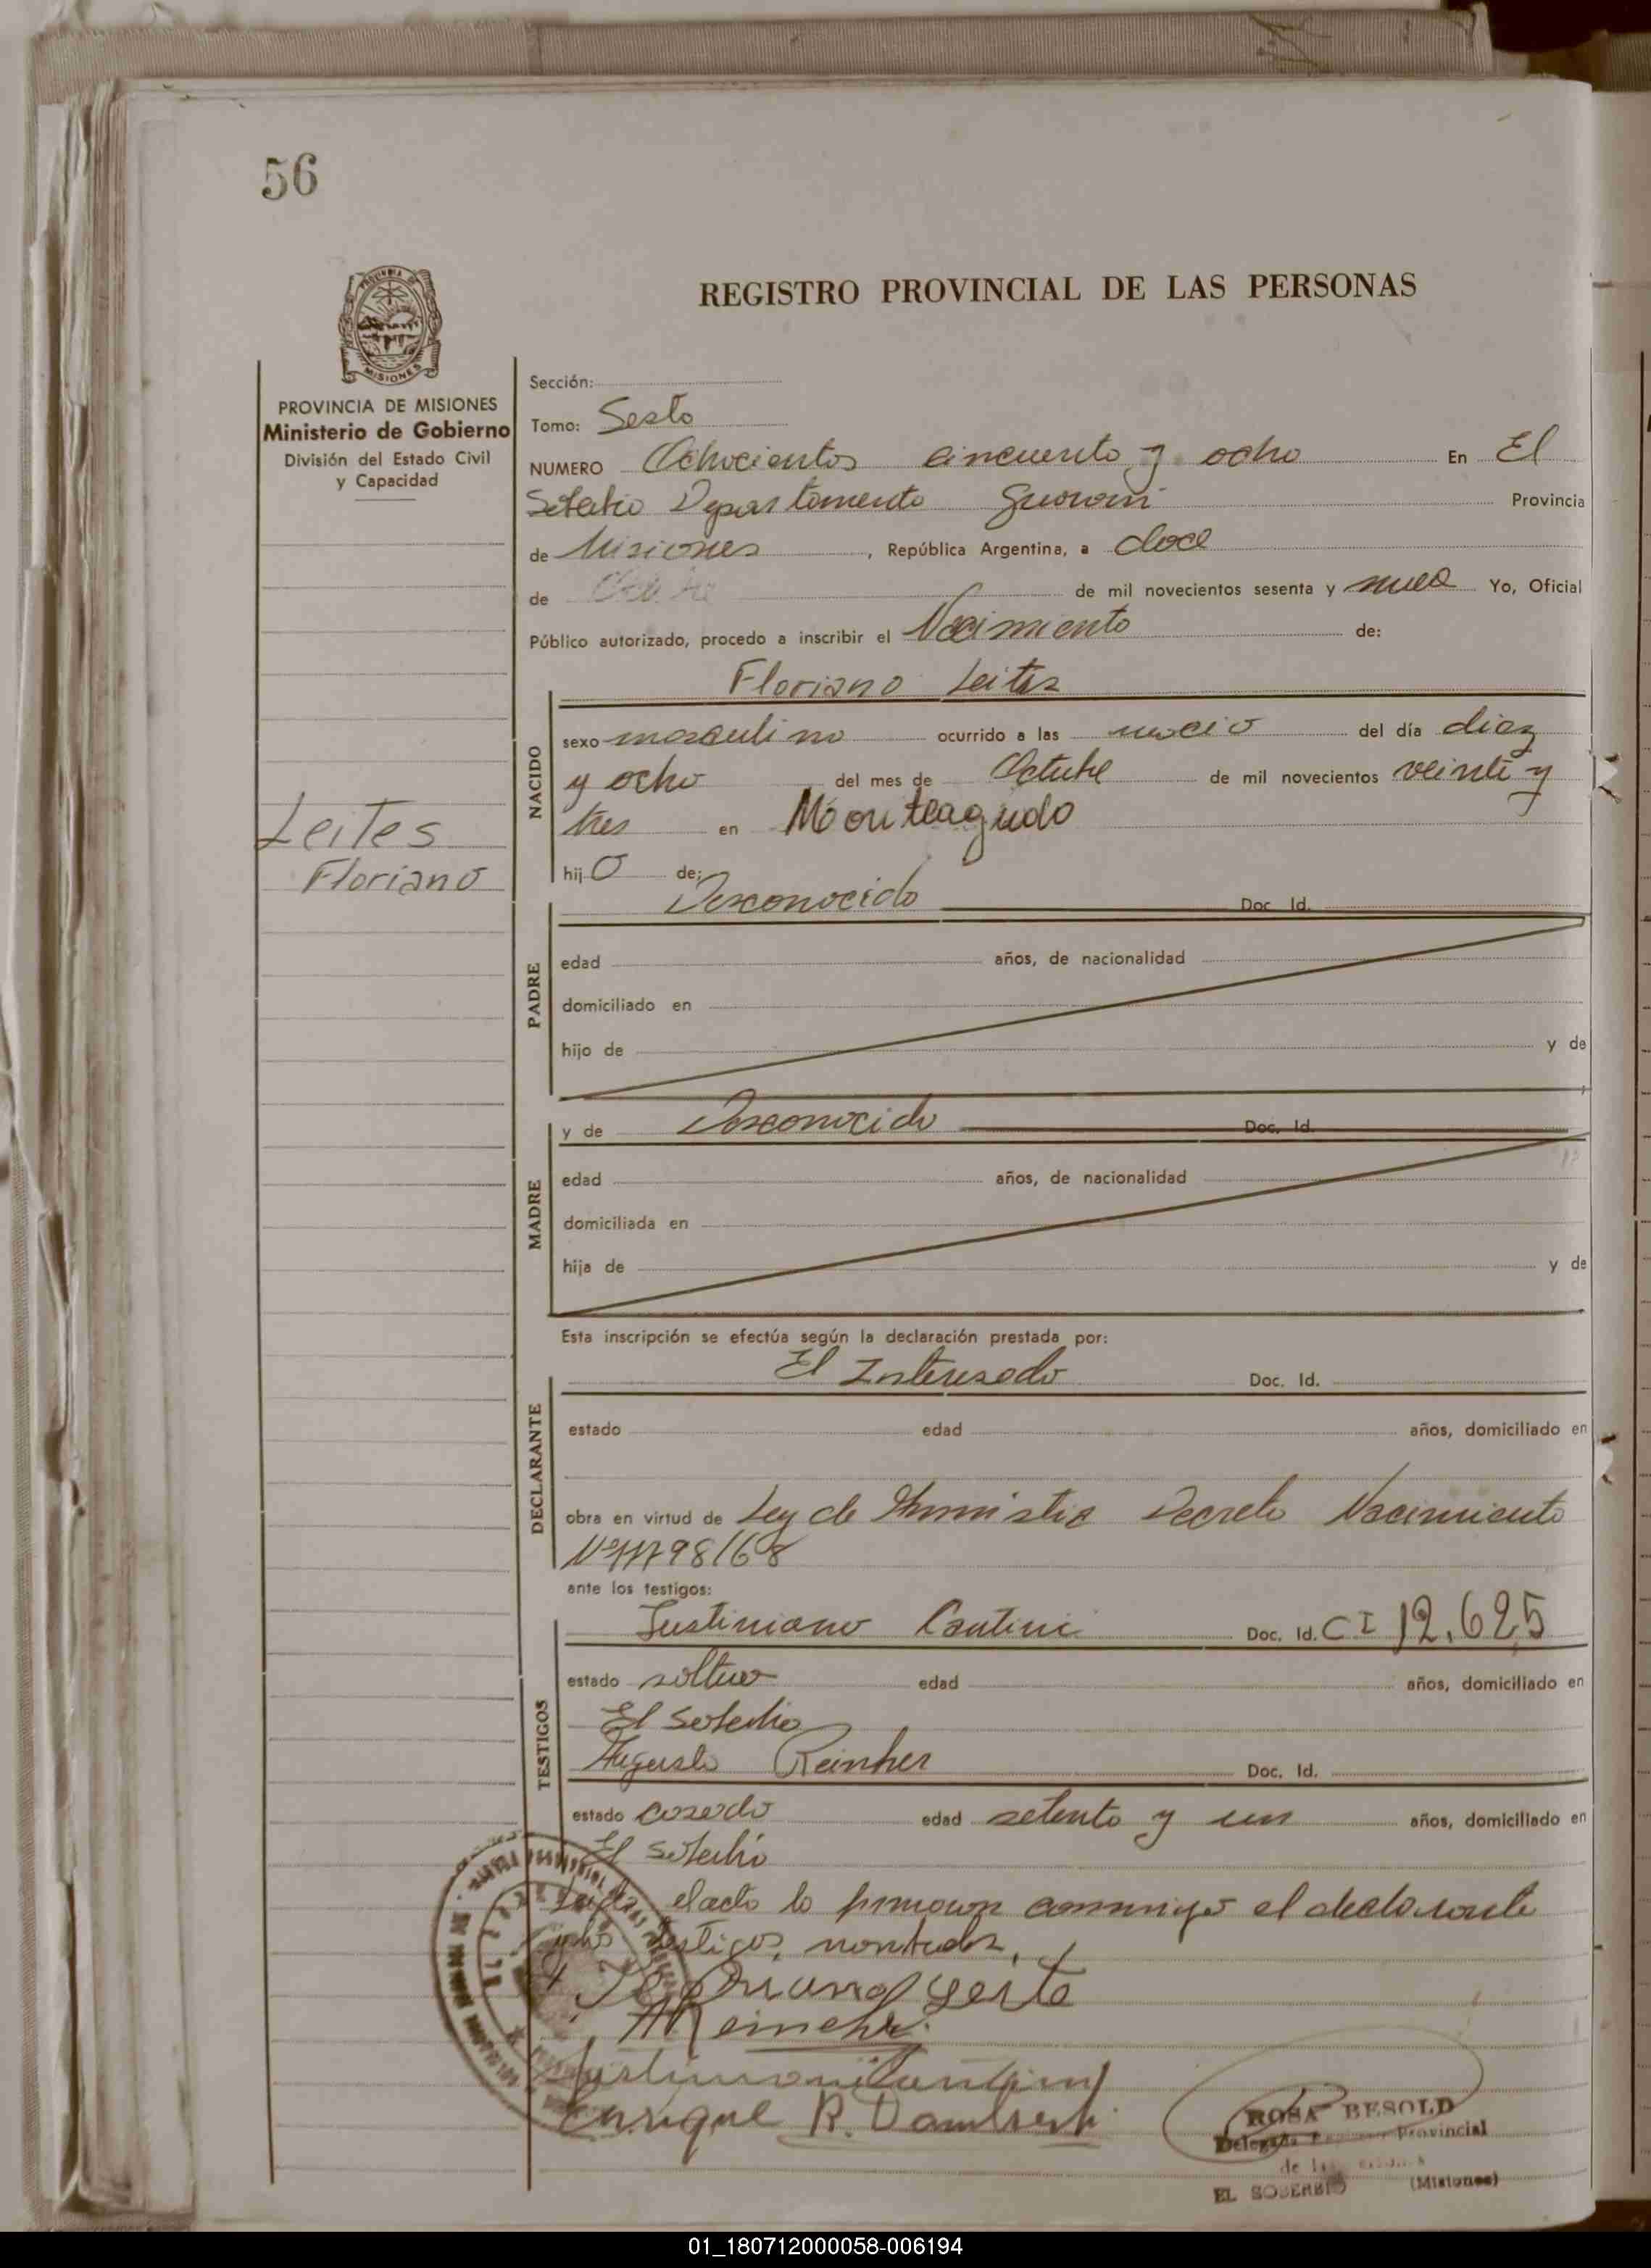 56
REGISTRO PROVINCIAL DE LAS PERSONAS
PROVINCIA DE MISIONES
MISIONES
PROVINCIA DE MISIONES
Ministerio de Gobierno
División del Estado Civil
y Capacidad
Leites
Floriano
Sección:
Tomo: Sesto
NUMERO Ochocientos cincuenta y ocho En El
Soberbio Departamento Guarani Provincia
de Misiones, República Argentina, a doce
de de mil novecientos sesenta y nueve Yo, Oficial
Público autorizado, procedo a inscribir el Nacimiento de:
Floriano Leites
NACIDO
sexo masculino ocurrido a las del día diez
y ocho del mes de Octubre de mil novecientos veinte y
tres en Monteagudo
hijo de:
PADRE
Desconocido Doc. Id.
edad años, de nacionalidad
domiciliado en
hijo de y de
MADRE
y de Desconocido Doc. Id.
edad años, de nacionalidad
domiciliada en
hija de y de
Esta inscripción se efectúa según la declaración prestada por:
DECLARANTE
El Interesado Doc. Id.
estado edad años, domiciliado en
obra en virtud de Ley de Amnistia Decreto Nacimiento
98/68
ante los testigos:
TESTIGOS
Justiniano Cantini Doc. Id. CI 12.625
estado soltero edad años, domiciliado en
El Soberbio
Augusto Reinher Doc. Id.
estado casado edad setenta y un años, domiciliado en
El Soberbio
el acto lo firmaron conmigo el declarante
y los testigos nombrados.
Enrique R.
ROSA BESOLD
Delegada Provincial
de las
EL SOBERBIO (Misiones)
01_180712000058-006194